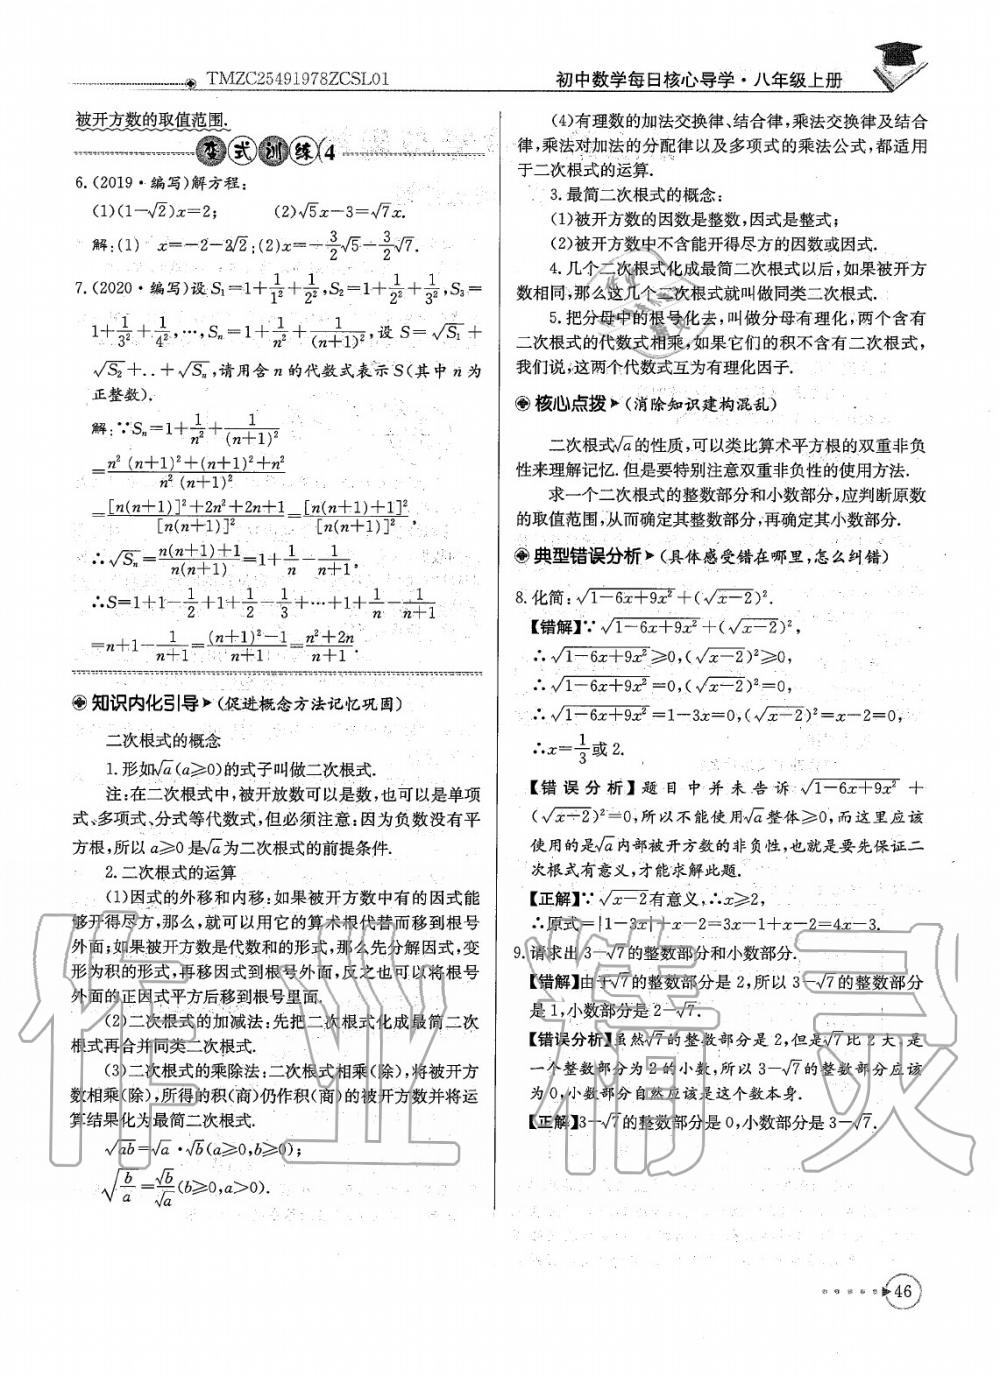 TMZC25491978ZCSL01
初中数学每日核心导学·八年级上册
被开方数的取值范围.
变式训练4
6.(2019·编写)解方程:
(1)(1-√2)x=2; (2)√5x-3=√7x.
解:(1) x=-2-2√2;(2)x=-3/2√5-3/2√7.
7.(2020·编写)设S₁=1+1/1²+1/2²,S₂=1+1/2²+1/3²,S₃=
1+1/3²+1/4²,…,Sₙ=1+1/n²+1/(n+1)²,设S=√S₁+
√S₂+..+√Sₙ,请用含n的代数式表示S(其中n为
正整数).
解:∵Sₙ=1+1/n²+1/(n+1)²
=n²(n+1)²+(n+1)²+n²/n²(n+1)²
=[n(n+1)]²+2n²+2n+1/[n(n+1)]²=[n(n+1)+1]²/[n(n+1)]²,
∴√Sₙ=n(n+1)+1/n(n+1)=1+1/n-1/n+1,
∴S=1+1-1/2+1+1/2-1/3+…+1+1/n-1/n+1
=n+1-1/n+1=(n+1)²-1/n+1=n²+2n/n+1.
知识内化引导➤(促进概念方法记忆巩固)
二次根式的概念
1.形如√a(a≥0)的式子叫做二次根式.
注:在二次根式中,被开放数可以是数,也可以是单项
式、多项式、分式等代数式,但必须注意:因为负数没有平
方根,所以a≥0是√a为二次根式的前提条件.
2.二次根式的运算
(1)因式的外移和内移:如果被开方数中有的因式能
够开得尽方,那么,就可以用它的算术根代替而移到根号
外面;如果被开方数是代数和的形式,那么先分解因式,变
形为积的形式,再移因式到根号外面,反之也可以将根号
外面的正因式平方后移到根号里面.
(2)二次根式的加减法:先把二次根式化成最简二次
根式再合并同类二次根式.
(3)二次根式的乘除法:二次根式相乘(除),将被开方
数相乘(除),所得的积(商)仍作积(商)的被开方数并将运
算结果化为最简二次根式.
√ab=√a·√b(a≥0,b≥0);
√b/a=√b/√a(b≥0,a>0).
(4)有理数的加法交换律、结合律,乘法交换律及结合
律,乘法对加法的分配律以及多项式的乘法公式,都适用
于二次根式的运算.
3.最简二次根式的概念:
(1)被开方数的因数是整数,因式是整式;
(2)被开方数中不含能开得尽方的因数或因式.
4.几个二次根式化成最简二次根式以后,如果被开方
数相同,那么这几个二次根式就叫做同类二次根式.
5.把分母中的根号化去,叫做分母有理化,两个含有
二次根式的代数式相乘,如果它们的积不含有二次根式,
我们说,这两个代数式互为有理化因子.
核心点拨➤(消除知识建构混乱)
二次根式√a的性质,可以类比算术平方根的双重非负
性来理解记忆.但是要特别注意双重非负性的使用方法.
求一个二次根式的整数部分和小数部分,应判断原数
的取值范围,从而确定其整数部分,再确定其小数部分.
典型错误分析➤(具体感受错在哪里,怎么纠错)
8.化简:√1-6x+9x²+(√x-2)².
【错解】∵√1-6x+9x²+(√x-2)²,
∴√1-6x+9x²≥0,(√x-2)²≥0,
∴√1-6x+9x²=0,(√x-2)²=0,
∴√1-6x+9x²=1-3x=0,(√x-2)²=x-2=0,
∴x=1/3或2.
【错误分析】题目中并未告诉√1-6x+9x²+
(√x-2)²=0,所以不能使用√a整体≥0,而这里应该
使用的是√a内部被开方数的非负性,也就是要先保证二
次根式有意义,才能求解此题.
【正解】∵√x-2有意义,∴x≥2,
∴原式=|1-3x|+x-2=3x-1+x-2=4x-3.
9.请求出3-√7的整数部分和小数部分.
【错解】由于√7的整数部分是2,所以3-√7的整数部分
是1,小数部分是2-√7.
【错误分析】虽然√7的整数部分是2,但是√7比2大,是
一个整数部分为2的小数,所以3-√7的整数部分应该
为0,小数部分自然应该是这个数本身.
【正解】3-√7的整数部分是0,小数部分是3-√7.
46
作业精灵